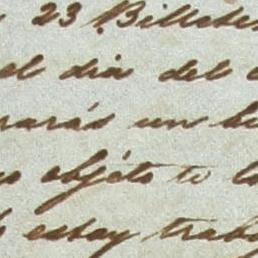 23 Billetes
el dia del
un
objéto te
estoy trab